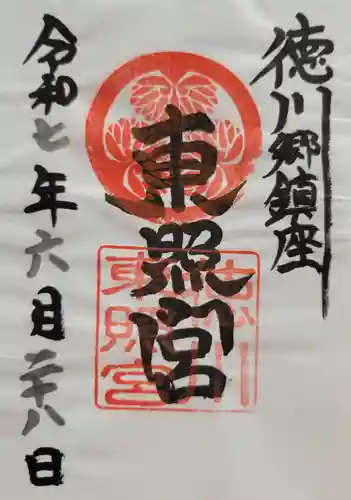 徳川郷鎮座
東照宮
世良田
東照宮
令和七年六月二十八日